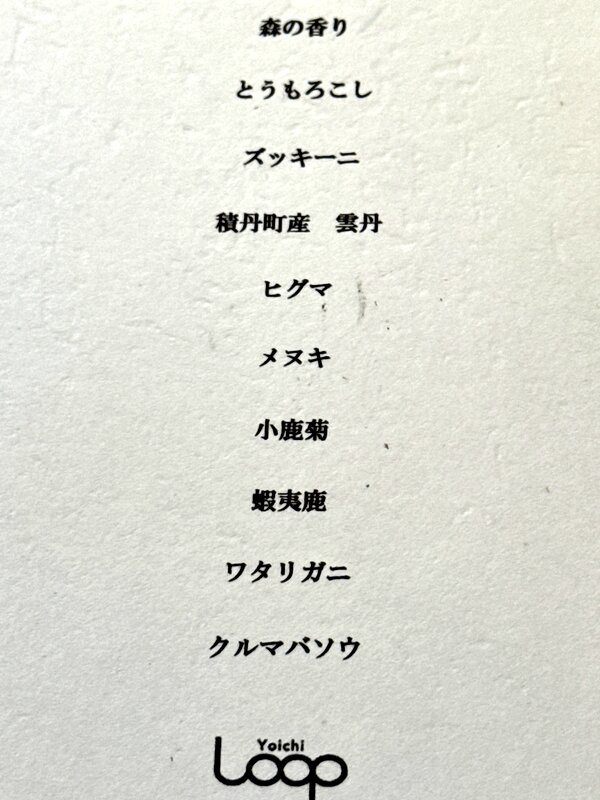 森の香り
とうもろこし
ズッキーニ
積丹町産　雲丹
ヒグマ
メヌキ
小鹿菊
蝦夷鹿
ワタリガニ
クルマバソウ
Yoichi
Loop